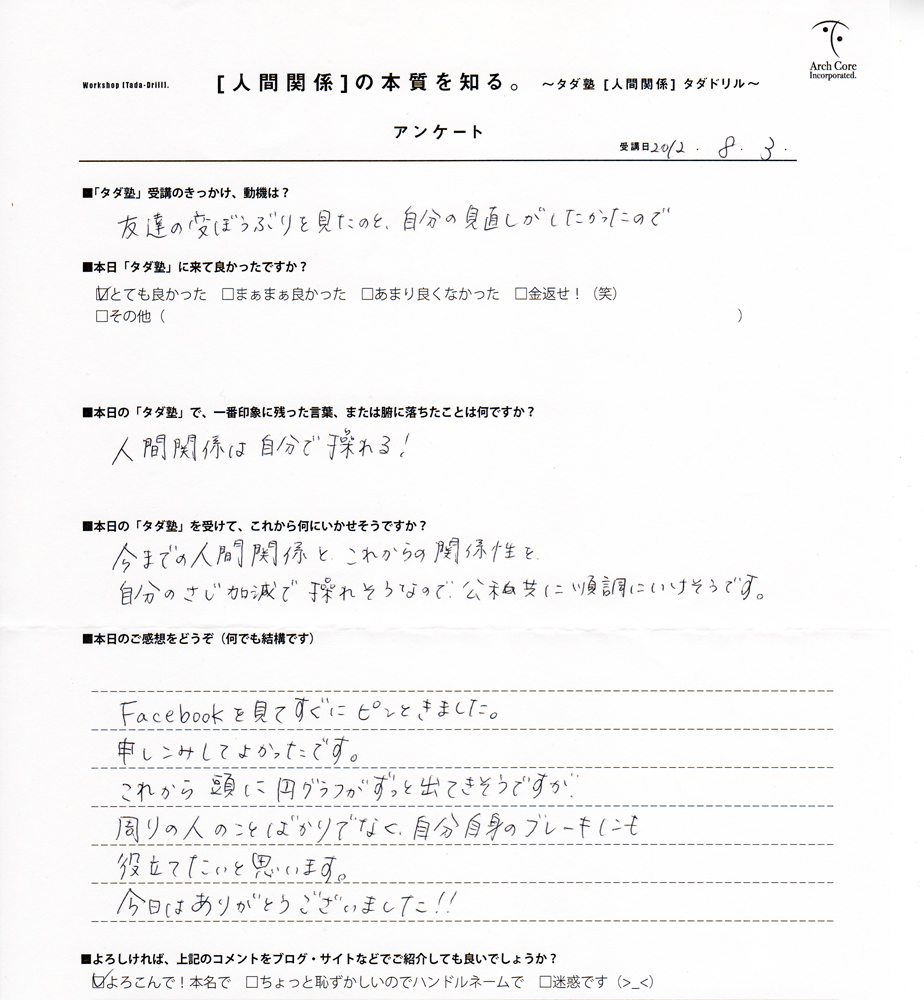 Arch Core
Incorporated.
Workshop [Tada-Drill]. [人間関係]の本質を知る。 ～タダ塾 [人間関係] タダドリル～
アンケート
受講日2012.8.3.
■「タダ塾」受講のきっかけ、動機は？
友達の変ぼうぶりを見たのと、自分の見直しがしたかったので
■本日「タダ塾」に来て良かったですか？
☑とても良かった □まぁまぁ良かった □あまり良くなかった □金返せ！（笑）
□その他（ ）
■本日の「タダ塾」で、一番印象に残った言葉、または腑に落ちたことは何ですか？
人間関係は自分で操れる!
■本日の「タダ塾」を受けて、これから何にいかせそうですか？
今までの人間関係と、これからの関係性を、
自分のさじ加減で操れそうなので、公私共に順調にいけそうです。
■本日のご感想をどうぞ（何でも結構です）
Facebookを見てすぐにピンときました。
申しこみしてよかったです。
これから頭に円グラフがずっと出てきそうですが、
周りの人のことばかりでなく、自分自身のブレーキにも
役立てたいと思います。
今日はありがとうございました!!
■よろしければ、上記のコメントをブログ・サイトなどでご紹介しても良いでしょうか？
☑よろこんで！本名で □ちょっと恥ずかしいのでハンドルネームで □迷惑です（>_<）